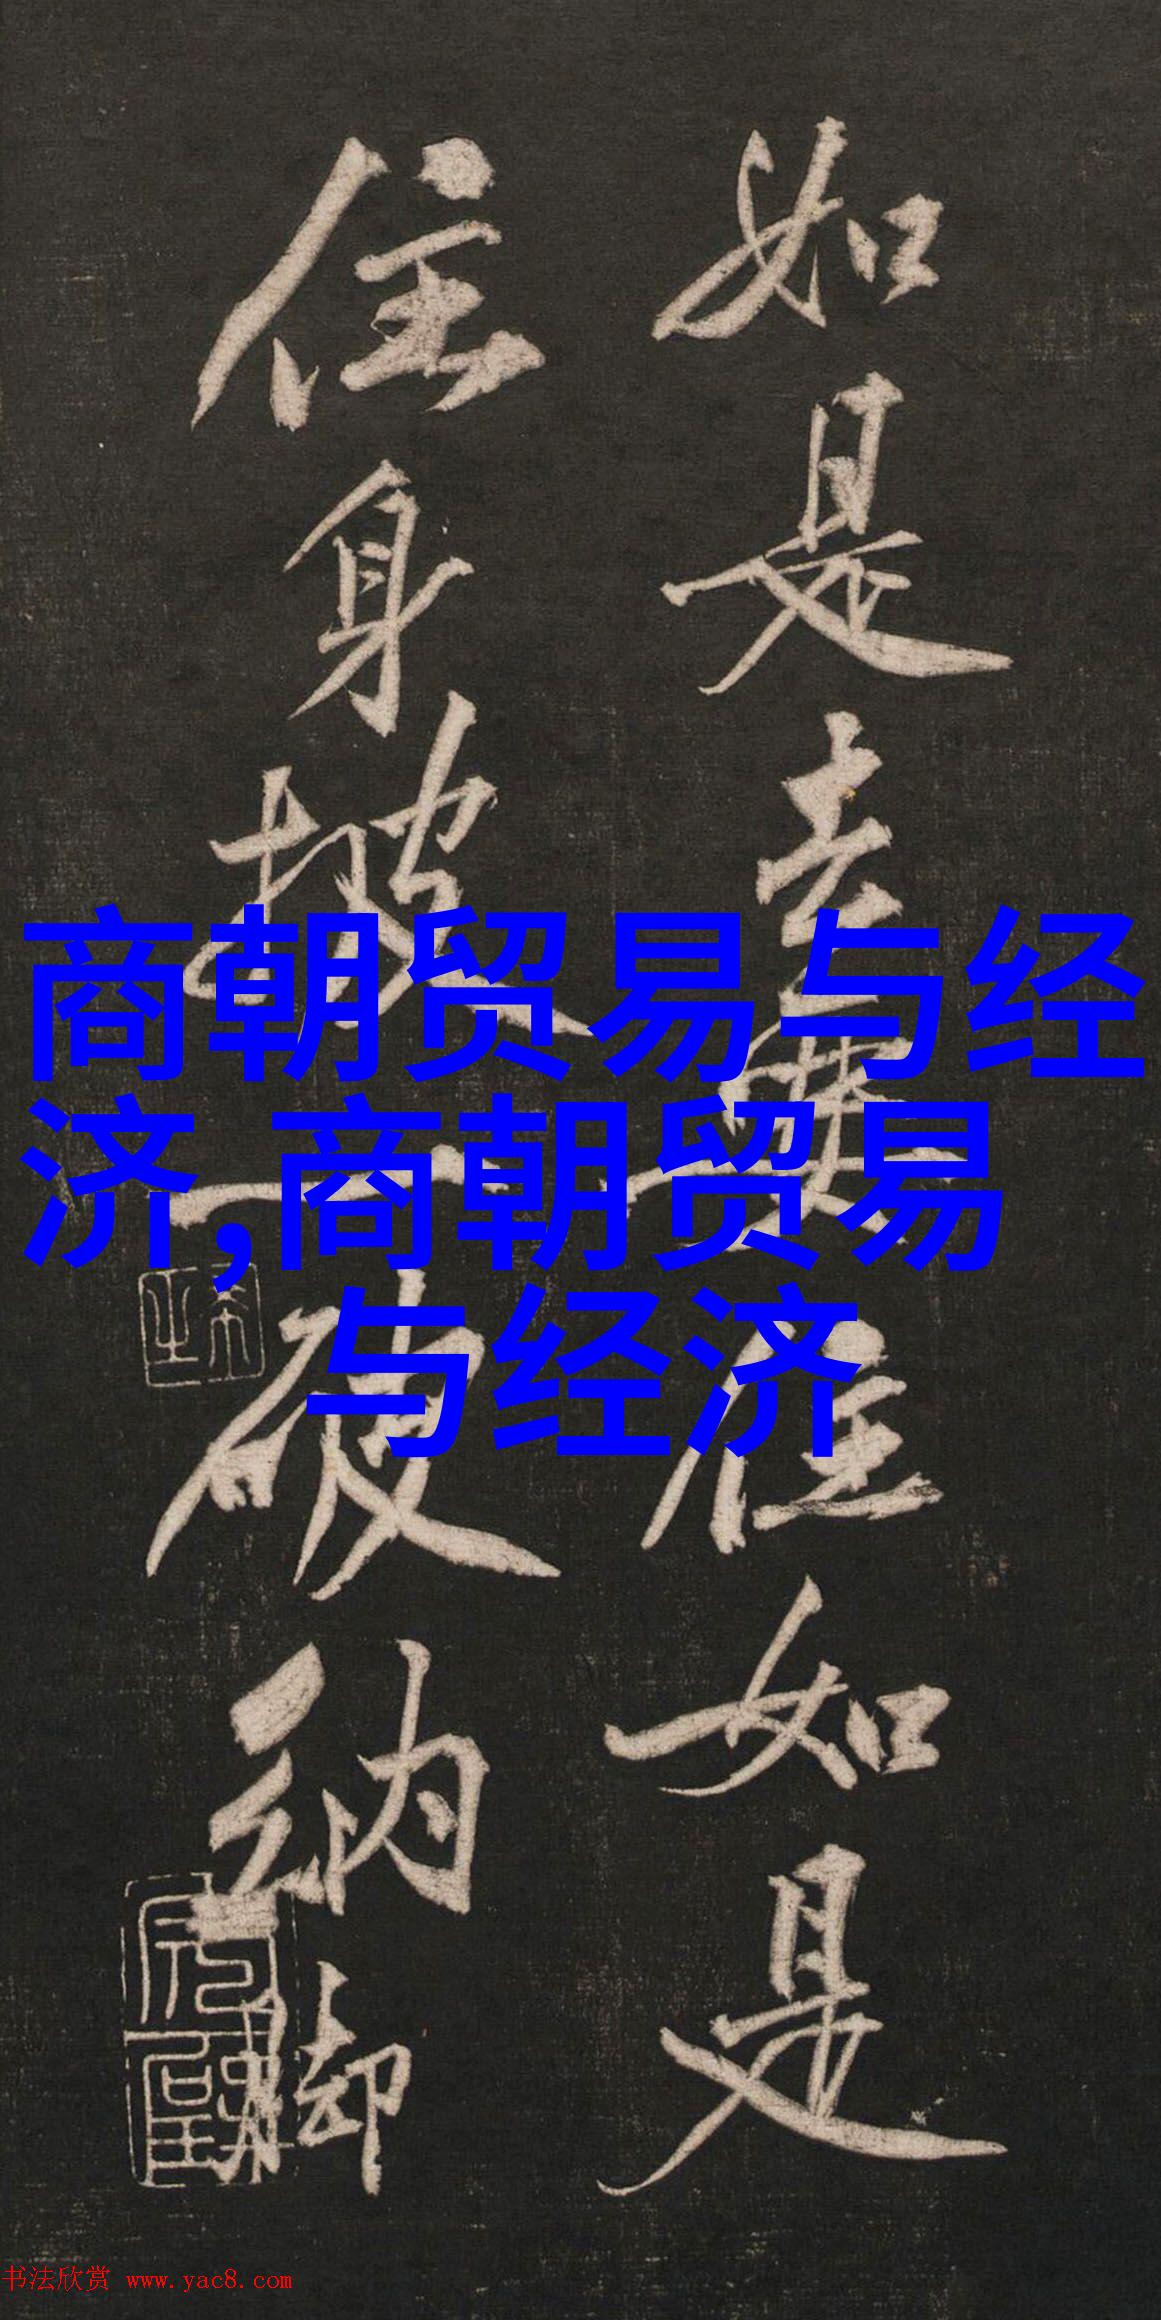 如是去來住如是
住身披一破納脚
商朝贸易与经
济,商朝贸易
与经济
书法欣赏 www.yac8.com